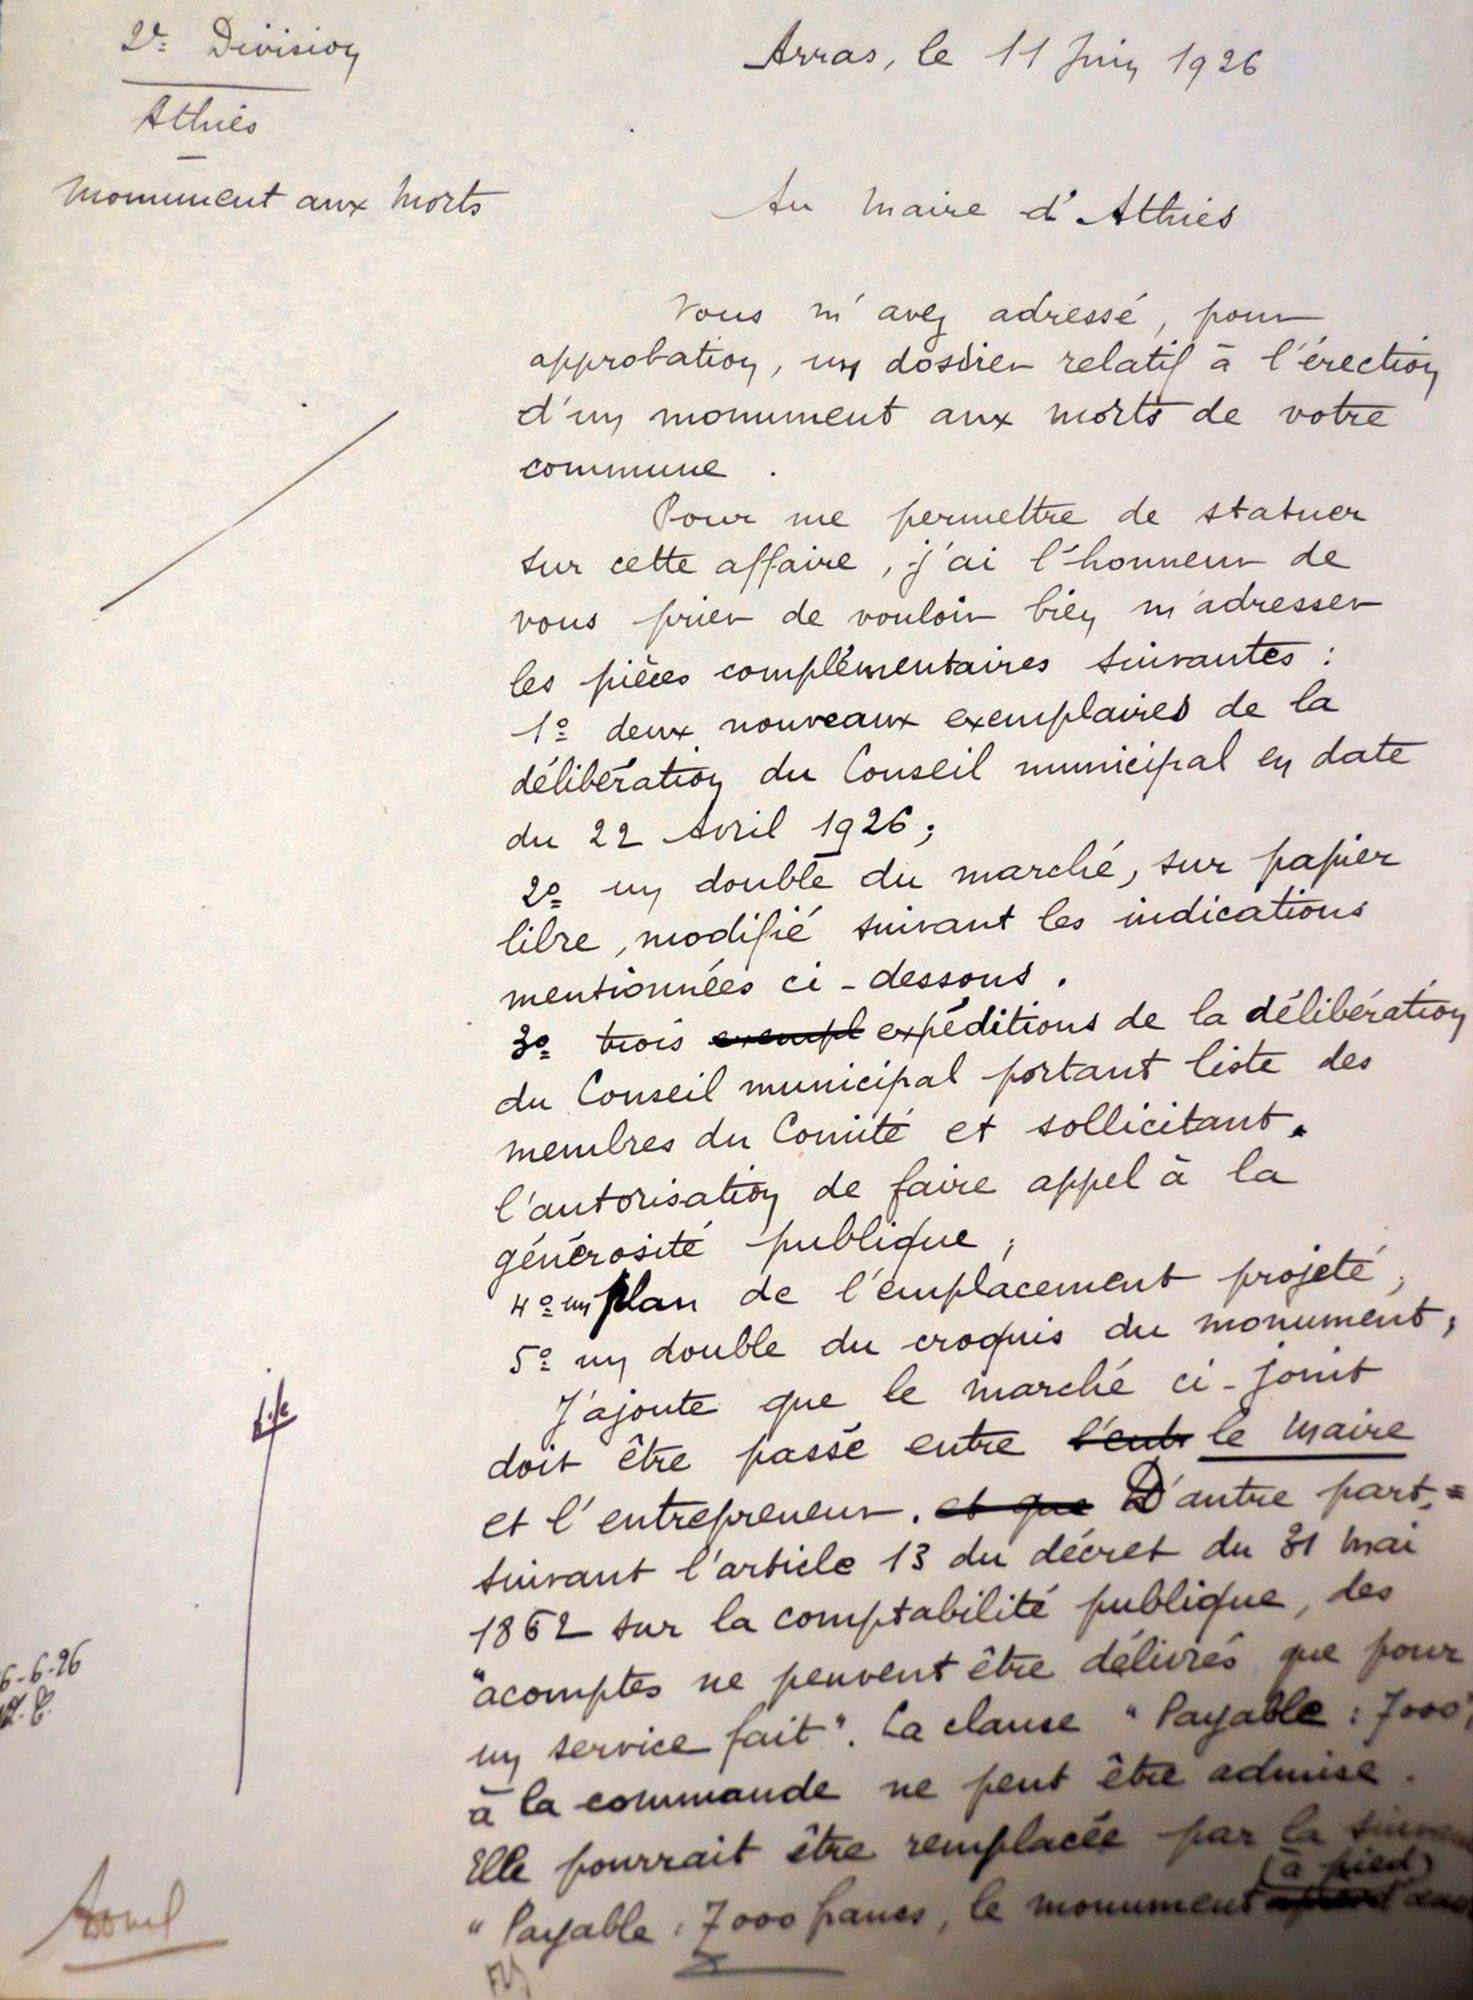 2e Division
Athies
Monument aux Morts
Arras, le 11 Juin 1926
Au Maire d'Athies
Vous m'avez adressé, pour
approbation, un dossier relatif à l'érection
d'un monument aux morts de votre
commune.
Pour me permettre de statuer
sur cette affaire, j'ai l'honneur de
vous prier de vouloir bien m'adresser
les pièces complémentaires suivantes :
1º deux nouveaux exemplaires de la
délibération du Conseil municipal en date
du 22 Avril 1926;
2º un double du marché, sur papier
libre, modifié suivant les indications
mentionnées ci-dessous.
3º trois exempl expéditions de la délibération
du Conseil municipal portant liste des
membres du Comité et sollicitant
l'autorisation de faire appel à la
générosité publique;
4º un plan de l'emplacement projeté;
5º un double du croquis du monument;
J'ajoute que le marché ci-joint
doit être passé entre le Maire
et l'entrepreneur. et que D'autre part,
suivant l'article 13 du décret du 31 Mai
1862 sur la comptabilité publique, des
"acomptes ne peuvent être délivrés que pour
un service fait". La clause "Payable : 7000
à la commande ne peut être admise.
Elle pourrait être remplacée par la
(à pied)
"Payable : 7000 francs, le monument
6-6-26